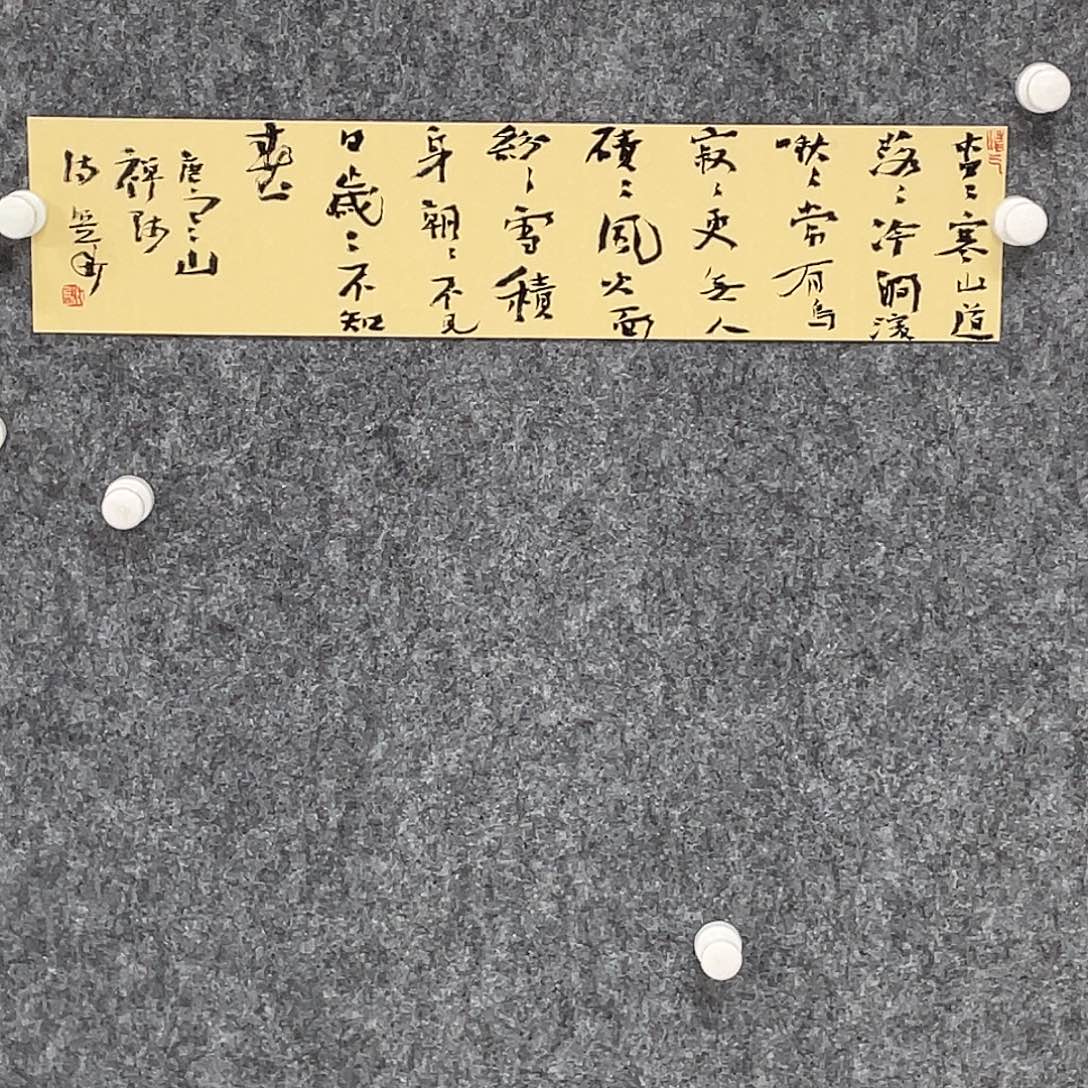 杳〻寒山道
落〻冷澗濱
啾〻常有鳥
寂〻更無人
磧〻風吹面
紛〻雪積
身朝〻不見
日歲〻不知
春
唐山
禪師
詩